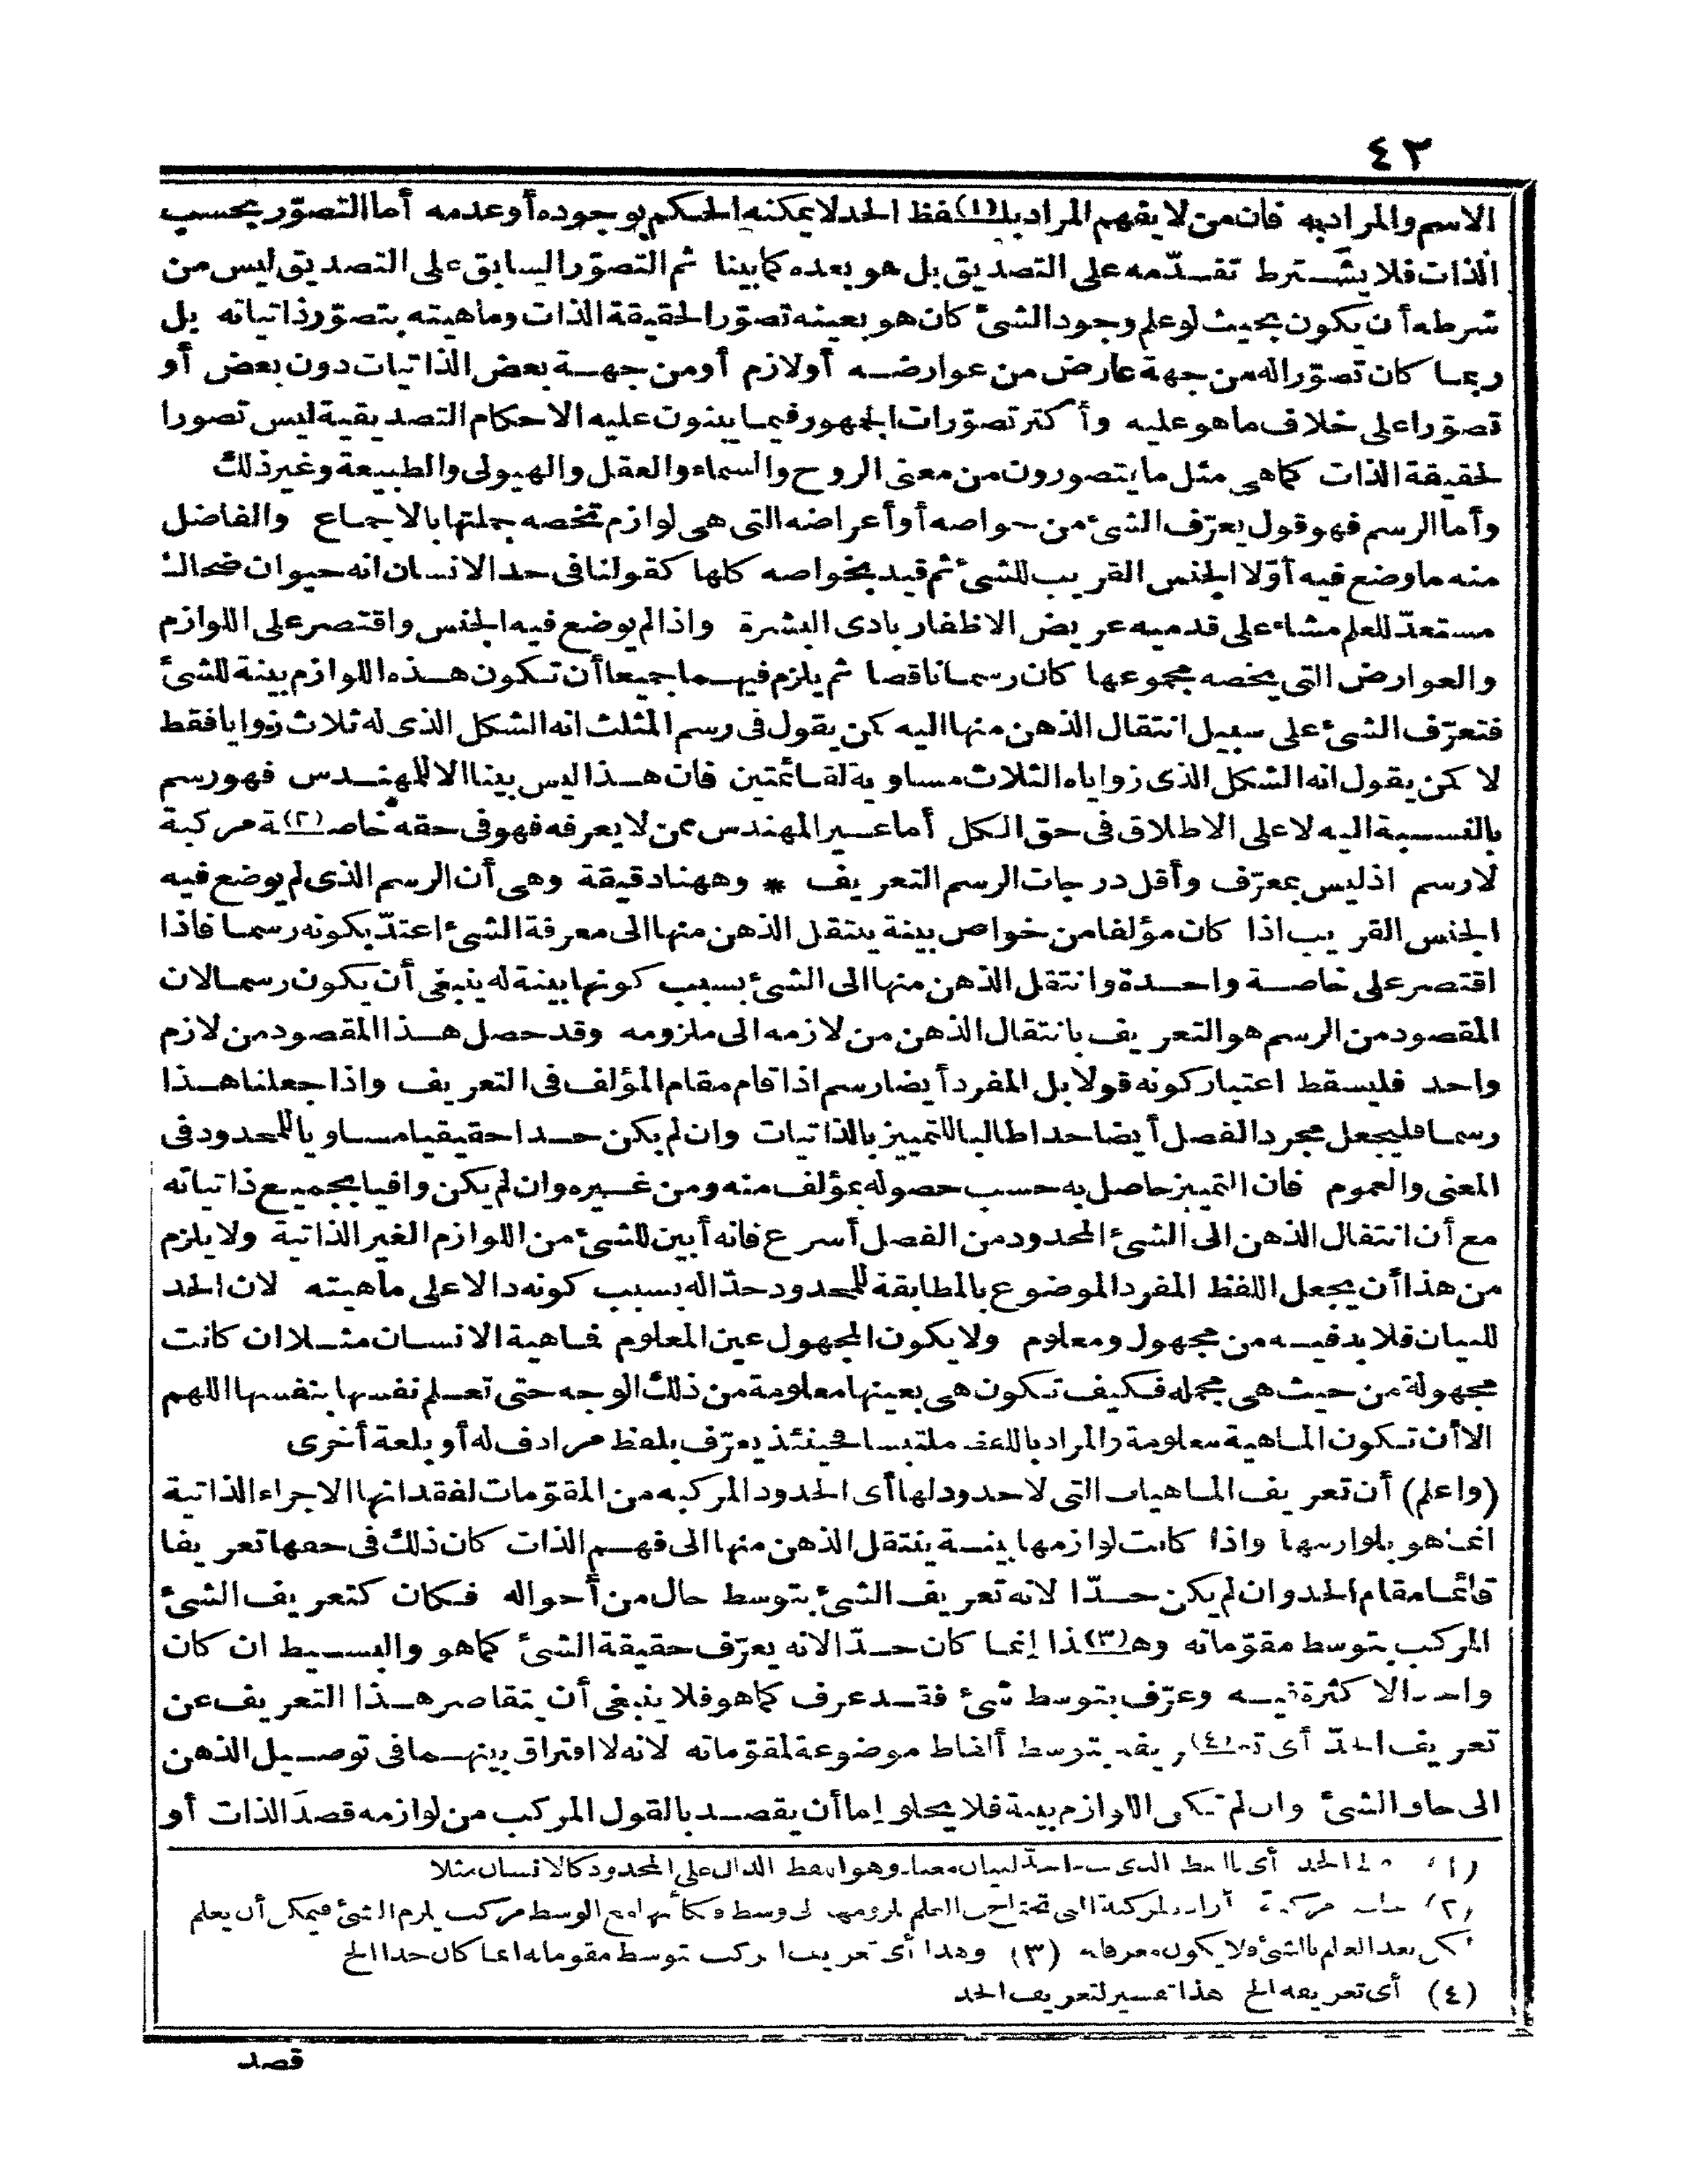 ٤٣
الاسم والمراد به فان من لا يفهم المراد بل(١)فظ الحد لا يمكنه الحكم بوجوده أو عدمه أما التصوّر بحسب
الذات فلا يشترط تقدّمه على التصديق بل هو بعده كما بينا ثم التصوّر السابق على التصديق ليس من
شرطه أن يكون بحيث لو علم وجود الشئ كان هو بعينه تصوّر الحقيقة الذات وماهيته بتصوّر ذاتياته بل
ربما كان تصوّرا له من جهة عارض من عوارضه أو لازم أو من جهة بعض الذاتيات دون بعض أو
تصوّرا على خلاف ما هو عليه وأكثر تصوّرات الجمهور فيما يبنون عليه الاحكام التصديقية ليس تصورا
لحقيقة الذات كما هي مثل ما يتصورون من معنى الروح والسماء والعقل والهيولى والطبيعة وغير ذلك
وأما الرسم فهو قول يعرّف الشئ من خواصه أو أعراضه التى هى لوازم تخصه جملتها بالاجماع والفاضل
منه ما وضع فيه أوّلا الجنس القريب للشئ ثم قيد بخواصه كلها كقولنا فى حد الانسان انه حيوان ضحاك
مستعدّ للعلم مشاء على قدميه عريض الاظفار بادى البشرة واذا لم يوضع فيه الجنس واقتصر على اللوازم
والعوارض التي يخصه مجموعها كان رسما ناقصا ثم يلزم فيهما جميعا أن تكون هذه اللوازم بينة للشئ
فتعرّف الشئ على سبيل انتقال الذهن منها اليه كمن يقول فى رسم المثلث انه الشكل الذى له ثلاث زوايا فقط
لا كمن يقول انه الشكل الذى زواياه الثلاث مساوية لقائمتين فان هذا ليس بينا الا للمهندس فهو رسم
بالنسبة اليه لا على الاطلاق فى حق الكل أما غير المهندس ممن لا يعرفه فهو فى حقه خاص(٢)ة مركبة
لا رسم اذ ليس بمعرّف وأقل درجات الرسم التعريف * وههنا دقيقة وهى أن الرسم الذى لم يوضع فيه
الجنس القريب اذا كان مؤلفا من خواص بينة ينتقل الذهن منها الى معرفة الشئ اعتدّ بكونه رسما فاذا
اقتصر على خاصة واحدة وانتقل الذهن منها الى الشئ بسبب كونها بينة له ينبغى أن يكون رسما لان
المقصود من الرسم هو التعريف بانتقال الذهن من لازمه الى ملزومه وقد حصل هذا المقصود من لازم
واحد فليسقط اعتبار كونه قولا بل المفرد أيضا رسم اذا قام مقام المؤلف فى التعريف واذا جعلنا هذا
رسما فليجعل مجرد الفصل أيضا حدا طالبا للتمييز بالذاتيات وان لم يكن حدا حقيقيا مساويا للمحدود فى
المعنى والعموم فان التمييز حاصل به حسب حصوله بمؤلف منه ومن غيره وان لم يكن وافيا بجميع ذاتياته
مع أن انتقال الذهن الى الشئ المحدود من الفصل أسرع فانه أبين للشئ من اللوازم الغير الذاتية ولا يلزم
من هذا أن يجعل اللفظ المفرد الموضوع بالمطابقة للمحدود حدّا له بسبب كونه دالا على ماهيته لان الحد
للبيان فلا بد فيه من مجهول ومعلوم ولا يكون المجهول عين المعلوم فماهية الانسان مثلا ان كانت
مجهولة من حيث هى مجملة فكيف تكون هى بعينها معلومة من ذلك الوجه حتى تعلم نفسها بنفسها اللهم
الا أن تكون الماهية معلومة والمراد باللفظ ملتبسا فحينئذ يعرّف بلفظ مرادف له أو بلغة أخرى
(واعلم) أن تعريف الماهيات التى لا حدود لها أى الحدود المركبة من المقوّمات لفقدانها الاجزاء الذاتية
انما هو بلوازمها واذا كانت لوازمها بينة ينتقل الذهن منها الى فهم الذات كان ذلك فى حقها تعريفا
قائما مقام الحد وان لم يكن حدّا لانه تعريف الشئ بتوسط حال من أحواله فكان كتعريف الشئ
المركب بتوسط مقوّماته وه(٣)ذا إنما كان حدّا لانه يعرّف حقيقة الشئ كما هو والبسيط ان كان
واحدا لا كثرة فيه وعرّف بتوسط شئ فقد عرف كما هو فلا ينبغى أن يتقاصر هذا التعريف عن
تعريف الحدّ أى تع(٤)ريفه بتوسط ألفاظ موضوعة لمقوّماته لانه لا افتراق بينهما فى توصيل الذهن
الى حاو الشئ وان لم تكن اللوازم بينة فلا يخلو إما أن يقصد بالقول المركب من لوازمه قصد الذات أو
(١) الحد أى باللفظ الذى حدّ لبيان معناه وهو اللفظ الدال على المحدود كالانسان مثلا
(٢) خاصة مركبة أراد المركبة التى تحتاج العلم لزومها لى وسط وكأنها مع الوسط مركب يلزم الشئ فيمكن أن يعلم
لكن بعد العلم بالشئ فلا يكون معرفا له (٣) وهذا أى تعريف المركب بتوسط مقوماته انما كان حدا الخ
(٤) أى تعريفه الخ هذا تفسير لتعريف الحد
قصد